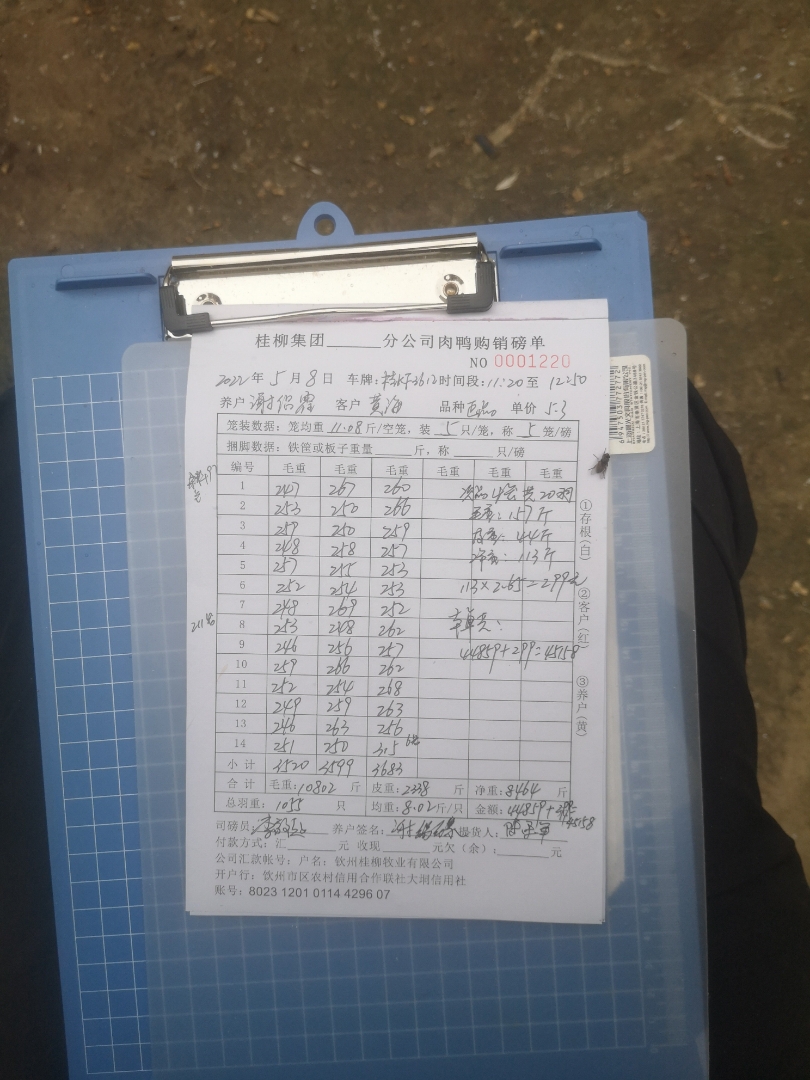 桂柳集团______分公司肉鸭购销磅单
NO 0001220
2022年 5 月 8 日 车牌: 3612 时间段: 11:20 至 12:50
养户 谢绍 客户 黄海 品种 单价 5.3
笼装数据: 笼均重 11.08 斤/空笼, 装 5 只/笼, 称 5 笼/磅
捆脚数据: 铁筐或板子重量______斤, 称______只/磅
编号 毛重 毛重 毛重 毛重 毛重 毛重
1 247 267 260 次品4笼 共20羽
2 253 250 266 毛重: 157斤
3 259 250 259 皮重: 44斤
4 248 258 257 净重: 113斤
5 257 255 253
6 252 254 253 113×2.65=299元
7 248 269 252
8 253 248 262
9 246 256 257 44859+299=45158
10 259 266 262
11 252 254 268
12 249 259 263
13 246 263 256
14 251 250 315 6笼
小计 3520 3599 3683
合计 毛重: 10802 斤 皮重: 2338 斤 净重: 8464 斤
总羽重: 1055 只 均重: 8.02 斤/只 金额: 44859+299
45158
司磅员: 养户签名: 谢绍 提货人:
付款方式: 汇______元 收现______元欠（余）:______元
公司汇款帐号: 户名: 钦州桂柳牧业有限公司
开户行: 钦州市区农村信用合作联社大垌信用社
账号: 8023 1201 0114 4296 07
①存根(白)
②客户(红)
③养户(黄)